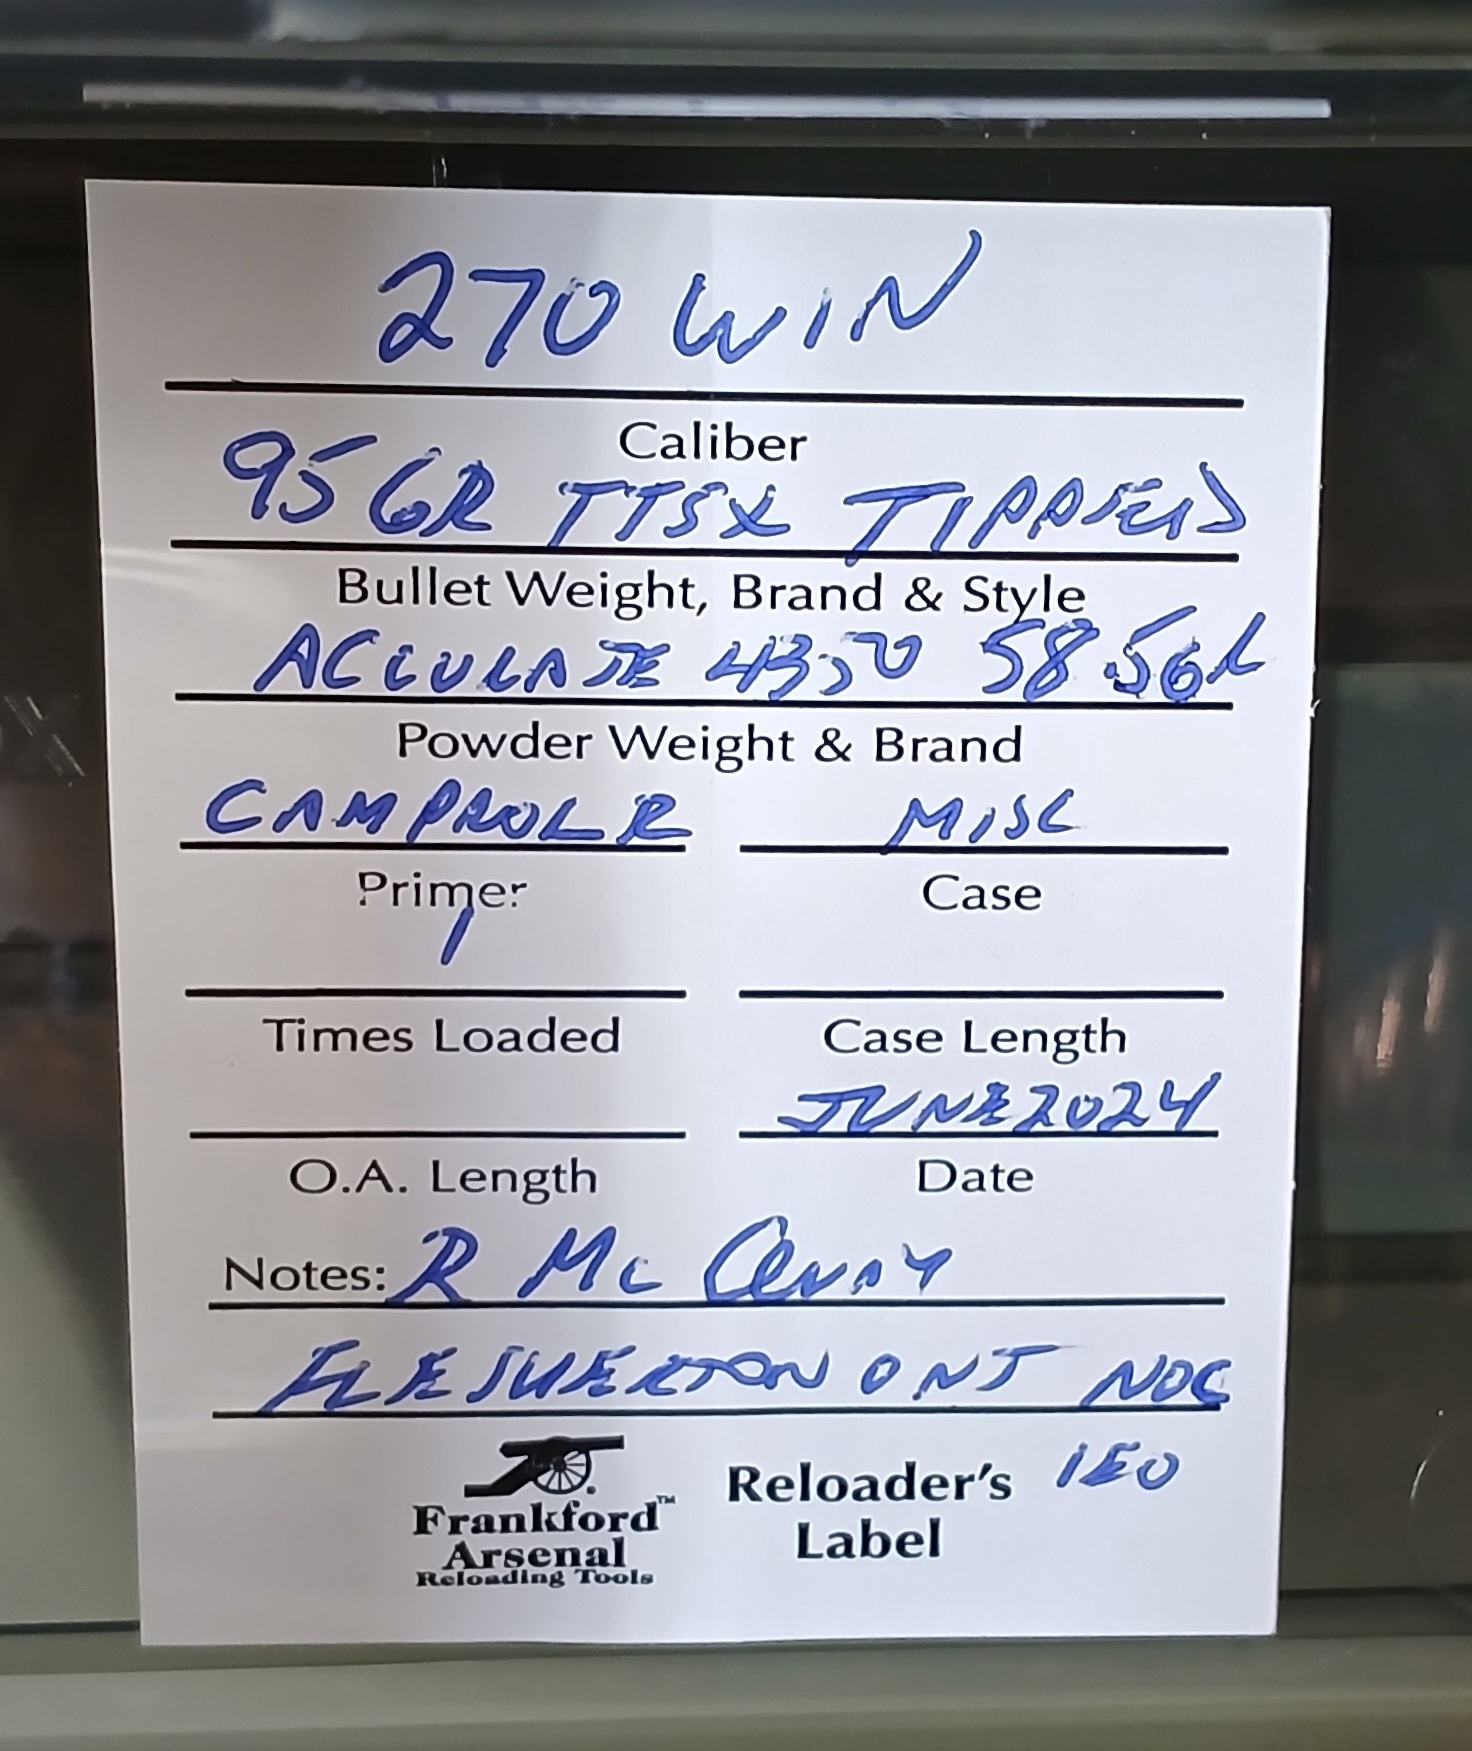 270 WIN
Caliber
95 GR TTSX TIPPED
Bullet Weight, Brand & Style
ACCURATE 4350 58.5GR
Powder Weight & Brand
CAM PRO LR MISC
Primer Case
1
Times Loaded Case Length
JUNE 2024
O.A. Length Date
Notes: R Mc
FLESHERTON ONT NOC
1E0
Frankford™ Reloader's
Arsenal Label
Reloading Tools